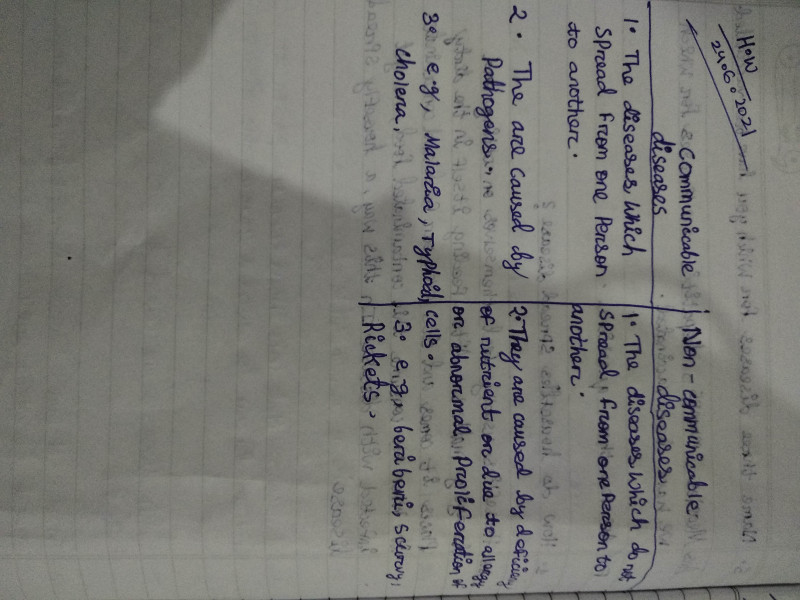 H.W
24.6.2021
Communicable
diseases
1. The diseases which
spread from one person
to another.
2. The are caused by
pathogens.
3. e.g, Malaria, Typhoid,
cholera,
Non-communicable
diseases
1. The diseases which do not
spread from one person to
another.
2. They are caused by deficiency
of nutrient or due to allergy
or abnormal proliferation of
cells.
3. e.g beriberi, scurvy,
Rickets.